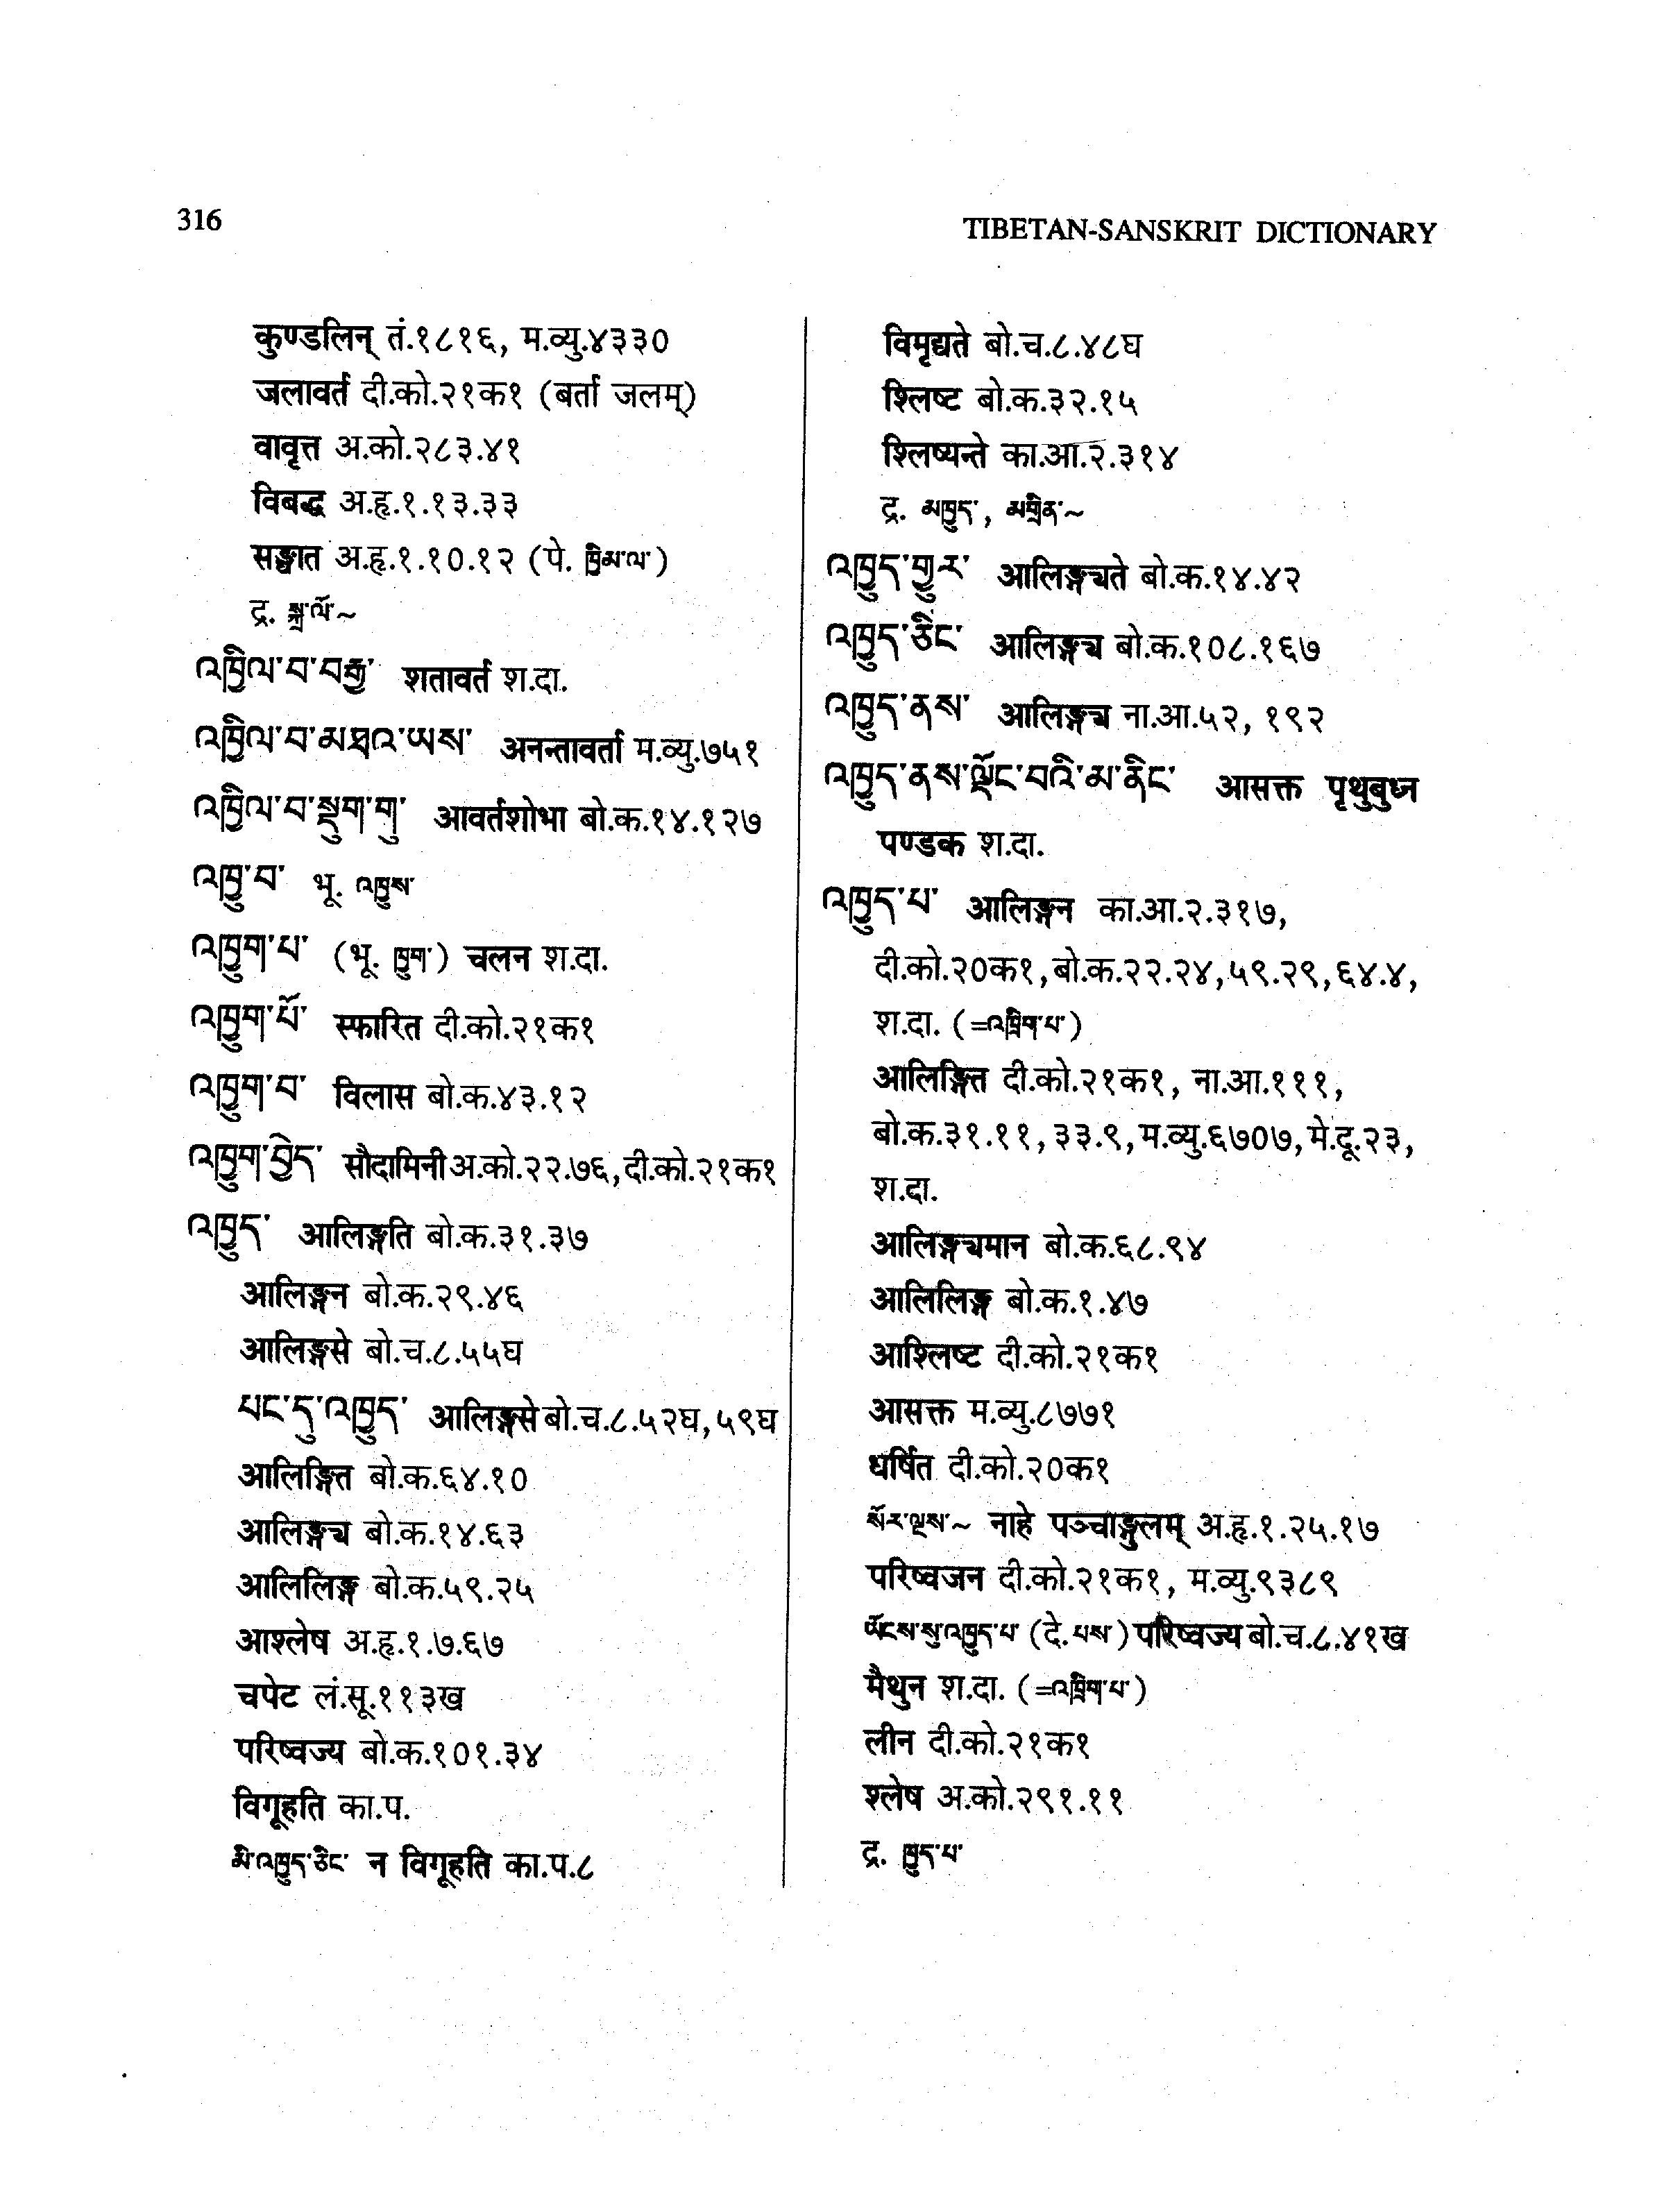 316
TIBETAN-SANSKRIT DICTIONARY
कुण्डलिन् तं.१८१६, म.व्यु.४३३०
जलावर्त दी.को.२१क१ (बर्ता जलम्)
वावृत्त अ.को.२८३.४१
विबद्ध अ.हृ.१.१३.३३
सङ्घात अ.हृ.१.१०.१२ (पे. ཁྲིམ་ལ་)
द्र. སྐྲ་ལོ་~
འཁྱིལ་བ་བརྒྱ་ शतावर्त श.दा.
འཁྱིལ་བ་མཐའ་ཡས་ अनन्तावर्ता म.व्यु.७५१
འཁྱིལ་བ་སྡུག་གུ་ आवर्तशोभा बो.क.१४.१२७
འཁྱུ་བ་ भू. འཁྱུས་
འཁྱུག་པ་ (भू. ཁྱུག་) चलन श.दा.
འཁྱུག་པོ་ स्फारित दी.को.२१क१
འཁྱུག་བ་ विलास बो.क.४३.१२
འཁྱུག་བྱེད་ सौदामिनी अ.को.२२.७६, दी.को.२१क१
འཁྱུད་ आलिङ्गति बो.क.३१.३७
आलिङ्गन बो.क.२९.४६
आलिङ्गसे बो.च.८.५५घ
པང་དུ་འཁྱུད་ आलिङ्गसे बो.च.८.५२घ, ५९घ
आलिङ्गित बो.क.६४.१०
आलिङ्ग्य बो.क.१४.६३
आलिलिङ्ग बो.क.५९.२५
आश्लेष अ.हृ.१.७.६७
चपेट लं.सू.११३ख
परिष्वज्य बो.क.१०१.३४
विगूहति का.प.
མི་འཁྱུད་ཅིང་ न विगूहति का.प.८
विमृद्यते बो.च.८.४८घ
श्लिष्ट बो.क.३२.१५
श्लिष्यन्ते का.आ.२.३१४
द्र. མཁྱུད་, མགྲིན་~
འཁྱུད་གྱུར་ आलिङ्ग्यते बो.क.१४.४२
འཁྱུད་ཅིང་ आलिङ्ग्य बो.क.१०८.१६७
འཁྱུད་ནས་ आलिङ्ग्य ना.आ.५२, १९२
འཁྱུད་ནས་ལྡོང་བའི་མ་ནིང་ आसक्त पृथुबुध्न
पण्डक श.दा.
འཁྱུད་པ་ आलिङ्गन का.आ.२.३१७,
दी.को.२०क१, बो.क.२२.२४, ५९.२९, ६४.४,
श.दा. (=འཁྲིག་པ་)
आलिङ्गित दी.को.२१क१, ना.आ.१११,
बो.क.३१.११, ३३.९, म.व्यु.६७०७, मे.दू.२३,
श.दा.
आलिङ्ग्यमान बो.क.६८.९४
आलिलिङ्ग बो.क.१.४७
आश्लिष्ट दी.को.२१क१
आसक्त म.व्यु.८७७१
धर्षित दी.को.२०क१
སོར་ལྔས་~ नाहे पञ्चाङ्गुलम् अ.हृ.१.२५.१७
परिष्वजन दी.को.२१क१, म.व्यु.९३८९
ཡོངས་སུ་འཁྱུད་པ་ (दे. པས་) परिष्वज्य बो.च.८.४१ख
मैथुन श.दा. (=འཁྲིག་པ་)
लीन दी.को.२१क१
श्लेष अ.को.२९१.११
द्र. ཁྱུད་པ་